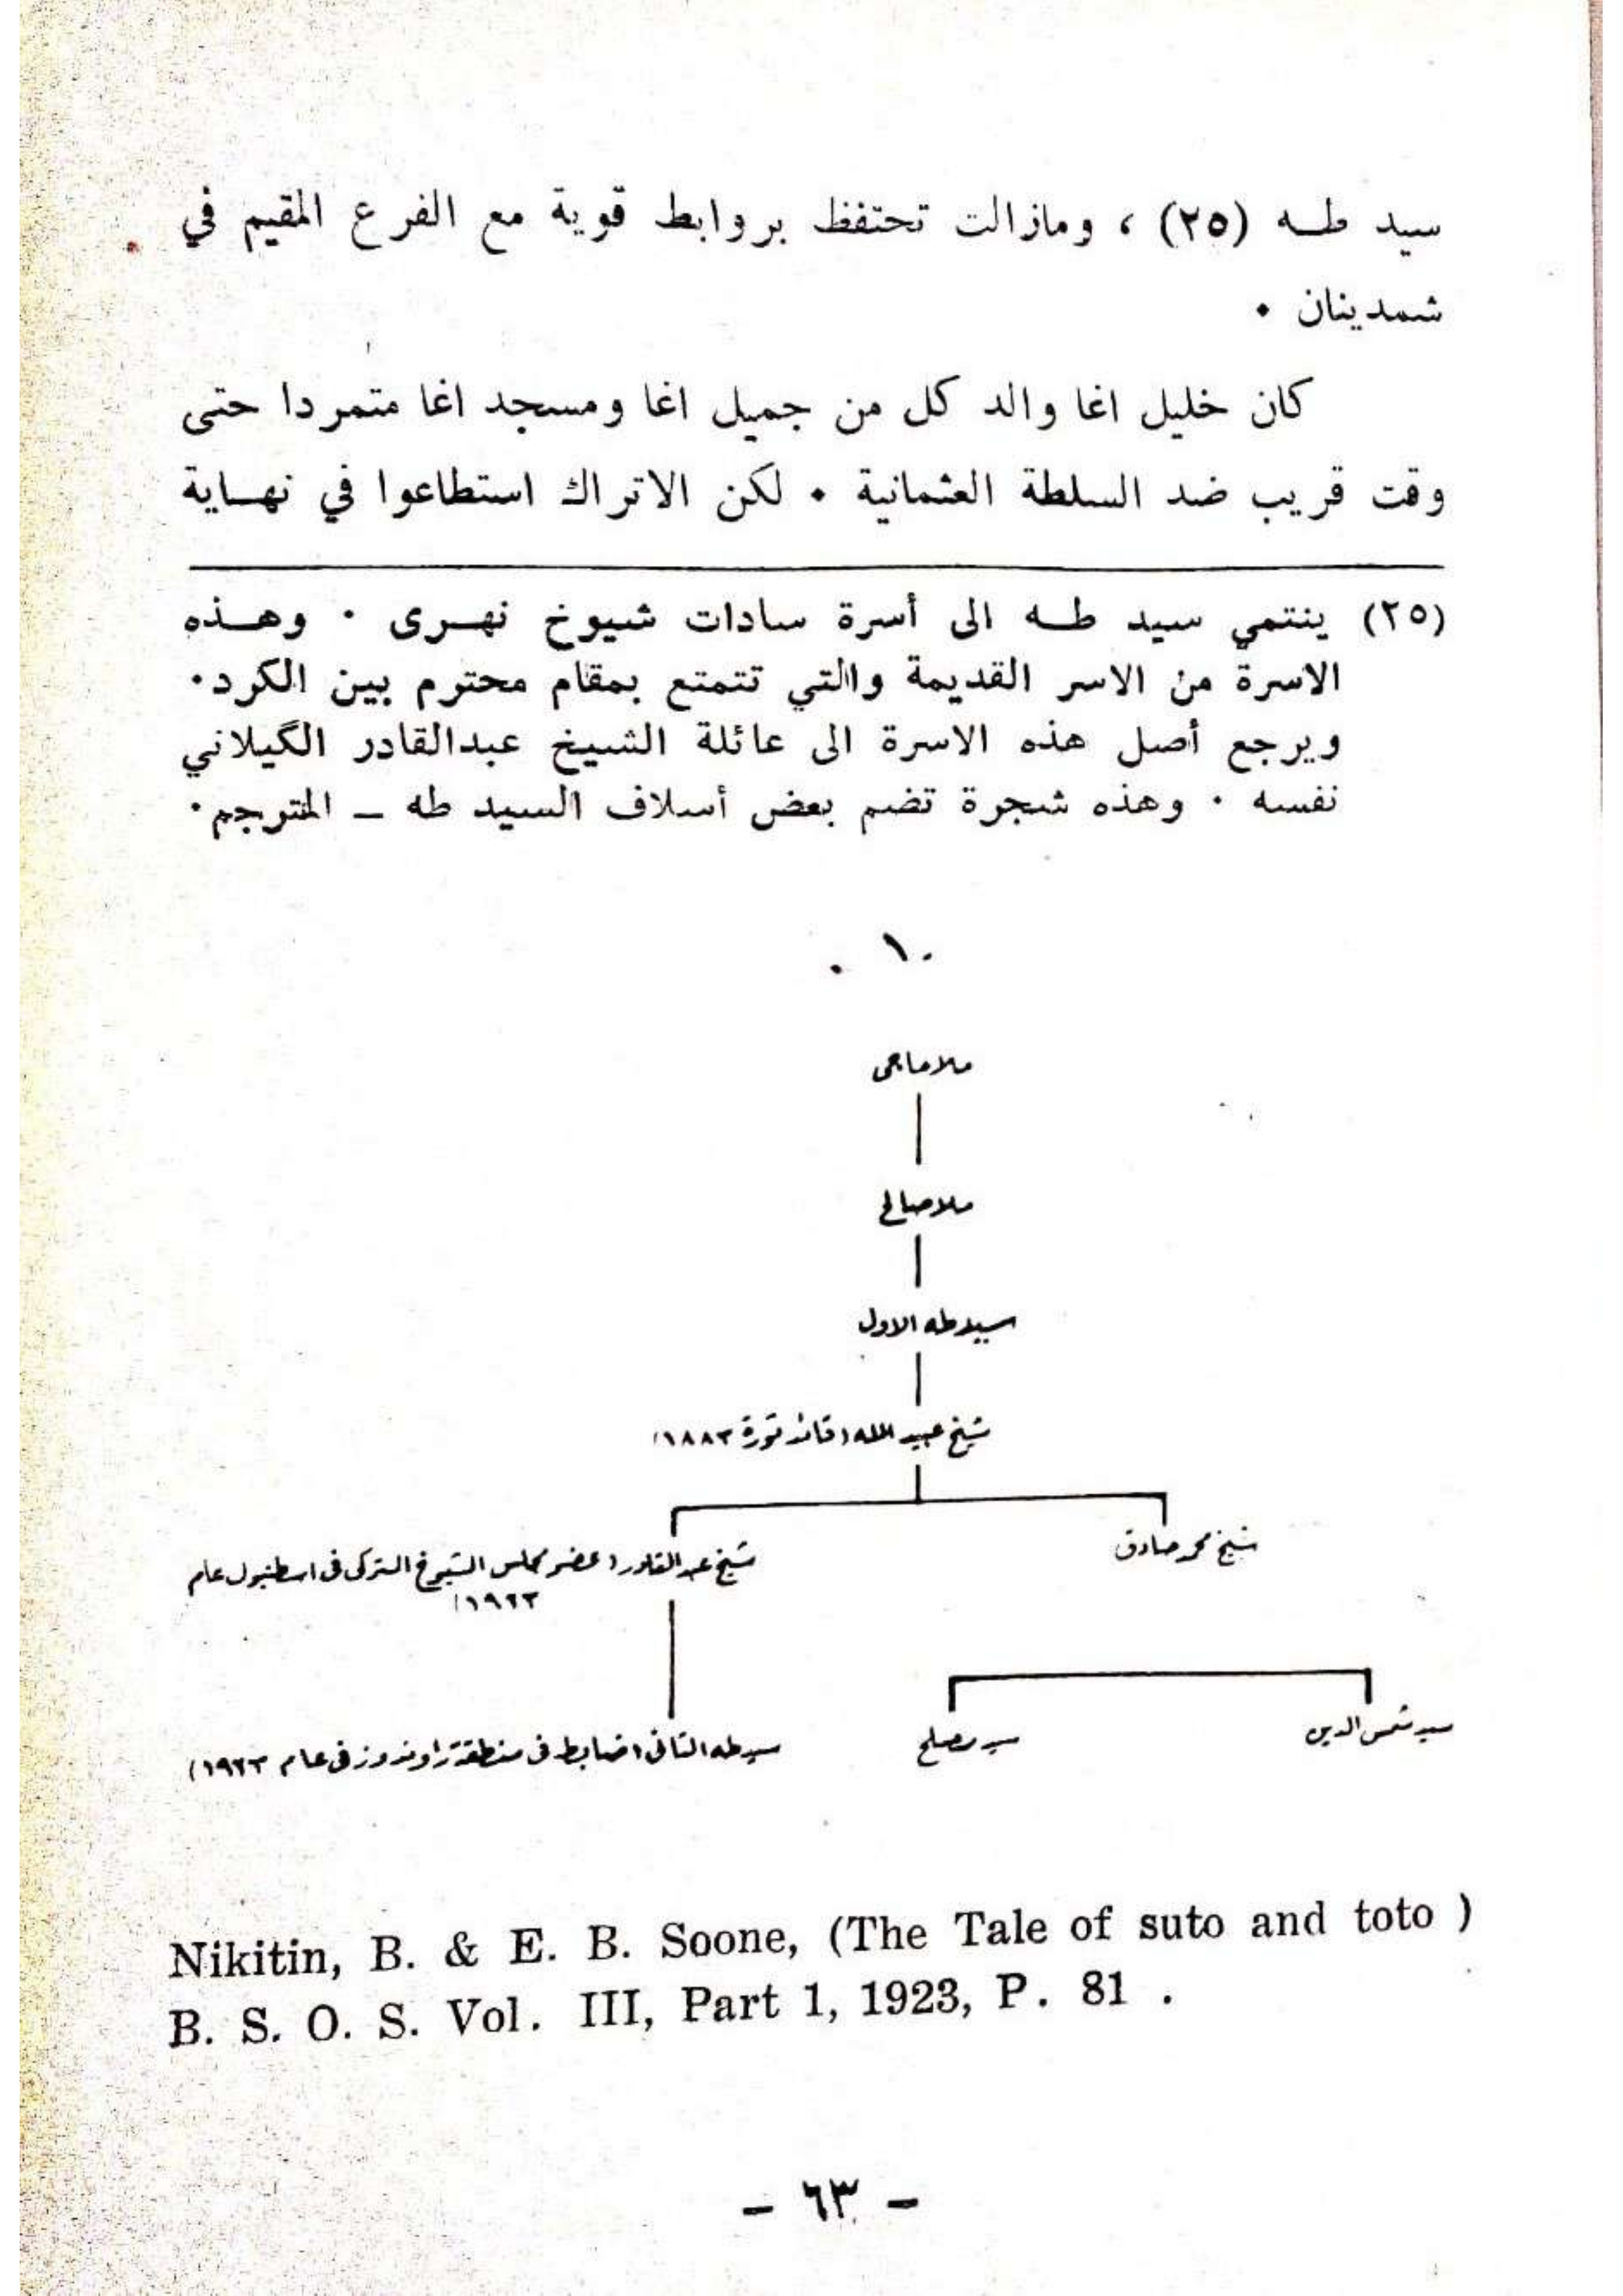 سيد طـه (٢٥) ، ومازالت تحتفظ بروابط قوية مع الفرع المقيم في
شمدينان ٠
كان خليل اغا والد كل من جميل اغا ومسجد اغا متمردا حتى
وقت قريب ضد السلطة العثمانية ٠ لكن الاتراك استطاعوا في نهـاية
(٢٥) ينتمي سيد طـه الى أسرة سادات شيوخ نهـرى ٠ وهـذه
الاسرة من الاسر القديمة والتي تتمتع بمقام محترم بين الكرد٠
ويرجع أصل هذه الاسرة الى عائلة الشيخ عبدالقادر الگيلاني
نفسه ٠ وهذه شجرة تضم بعض أسلاف السيد طه ــ المترجم٠
٠١ ٠
ملا حاجى
ملا صالح
سيد طه الاول
شيخ عبيد الله (قائد ثورة ١٨٨٣)
شيخ محمد صادق
شيخ عبد القادر (عضو مجلس الشيوخ التركى فى اسطنبول عام
١٩٢٣)
سيد شمس الدين
سيد مصلح
سيد طه الثانى (ضابط فى منطقة راوندوز فى عام ١٩٢٣)
Nikitin, B. & E. B. Soone, (The Tale of suto and toto )
B. S. O. S. Vol. III, Part 1, 1923, P. 81 .
- ٦٣ -